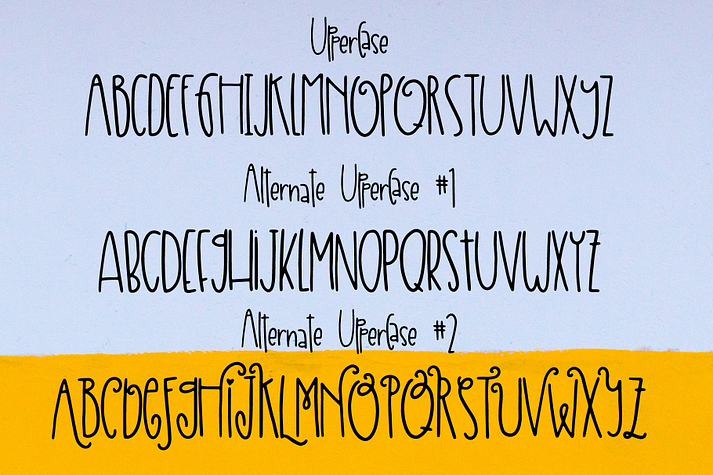 UpperCase
ABCDEFGHIJKLMNOPQRSTUVWXYZ
Alternate UpperCase #1
ABCDEFgHiJKLMNOPQRStUVWXYZ
Alternate UpperCase #2
ABCDEFgHiJKLMNOPQRSTUVWXYZ